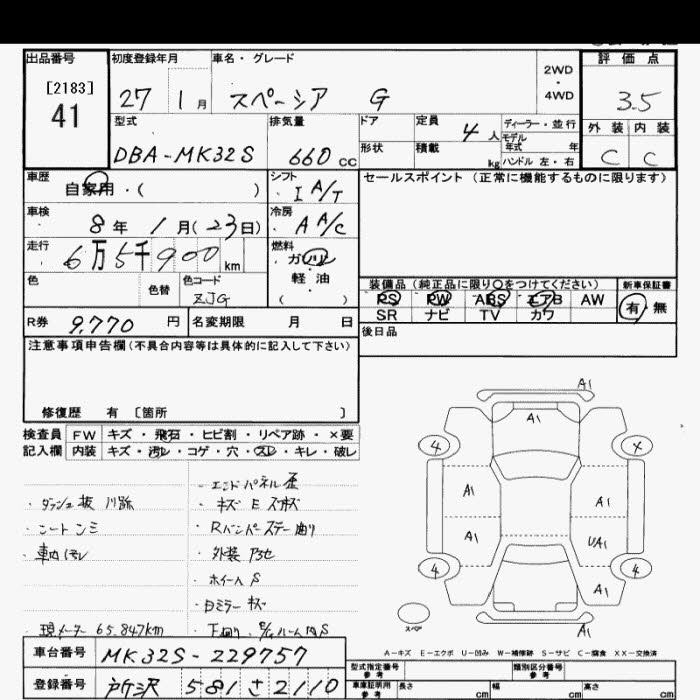 出品番号
[2183]
41
初度登録年月
27 1月
車名・グレード
スペーシア G
2WD
・
4WD
評価点
3.5
外装 内装
C C
型式
DBA-MK32S
排気量
660 cc
ドア
形状
定員
4人
積載
kg
ディーラー・並行
モデル
年式 年
ハンドル 左・右
車歴
自家用・( )
シフト
I A/T
車検
8年 1月(23日)
冷房
A A/C
走行
6万5千900km
燃料
ガソリン
・
軽油
( )
色
色替
色コード
ZJG
セールスポイント(正常に機能するものに限ります)
装備品(純正品に限り〇をつけてください)
PS PW ABS エアB AW
SR ナビ TV カワ
新車保証書
有・無
後日品
R券 9,770円
名変期限 月 日
注意事項申告欄(不具合内容等は具体的に記入して下さい)
修復歴 有 [箇所 ]
検査員
記入欄
FW キズ・飛石・ヒビ割・リペア跡・×要
内装 キズ・汚レ・コゲ・穴・スレ・キレ・破レ
・ダッシュ板
・車内汚レ
・現メーター 65,847km
・エンドパネル歪
・Rバンパーステー曲り
・外装
・ホイール S
・ミラー
・下回り
A1
A1
4
×
A1
A1
A1
UA1
4
4
A1
スペア
A1
A-キズ E-エクボ U-凹み W-補修跡 S-サビ C-腐食 XX-交換済
車台番号 MK32S-229757
登録番号 所沢 581 さ 2110
型式指定番号
参考
類別区分番号
参考
車庫証明用
参考
長さ cm
幅 cm
高さ cm